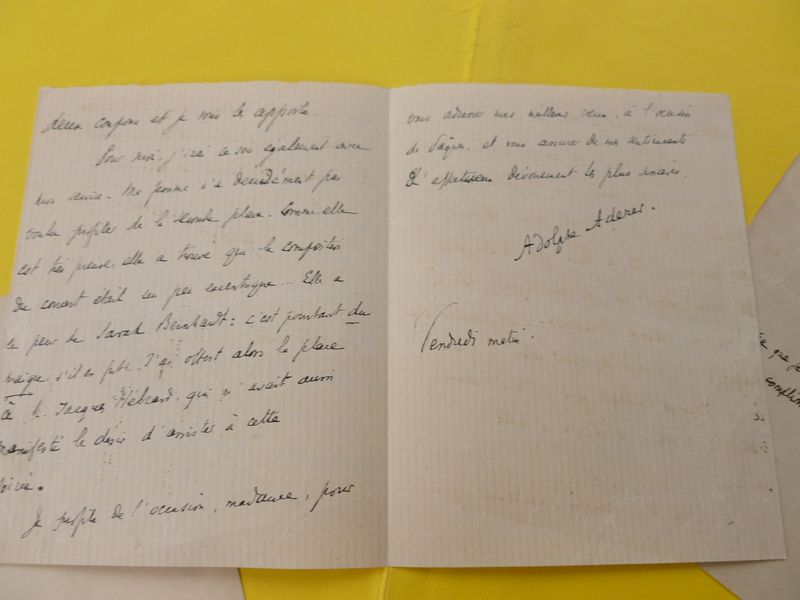 deux coupons et je vous les apporte.
Pour moi, j'irai ce soir également avec
mon service. Ma femme n'a décidément pas
voulu profiter de la seconde place. Comme elle
est très pieuse, elle a trouvé que la composition
du concert était un peu excentrique... Elle a
eu peur de Sarah Bernhardt : c'est pourtant du
maigre, s'il en fut. J'ai offert alors la place
à M. Jacques Hébrard, qui m'avait aussi
manifesté le désir d'assister à cette
soirée.
Je profite de l'occasion, madame, pour
vous adresser mes meilleurs vœux, à l'occasion
de Pâques, et vous assurer de mes sentiments
dévouement les plus sincères.
Adolphe Aderer.
Vendredi matin.
que je